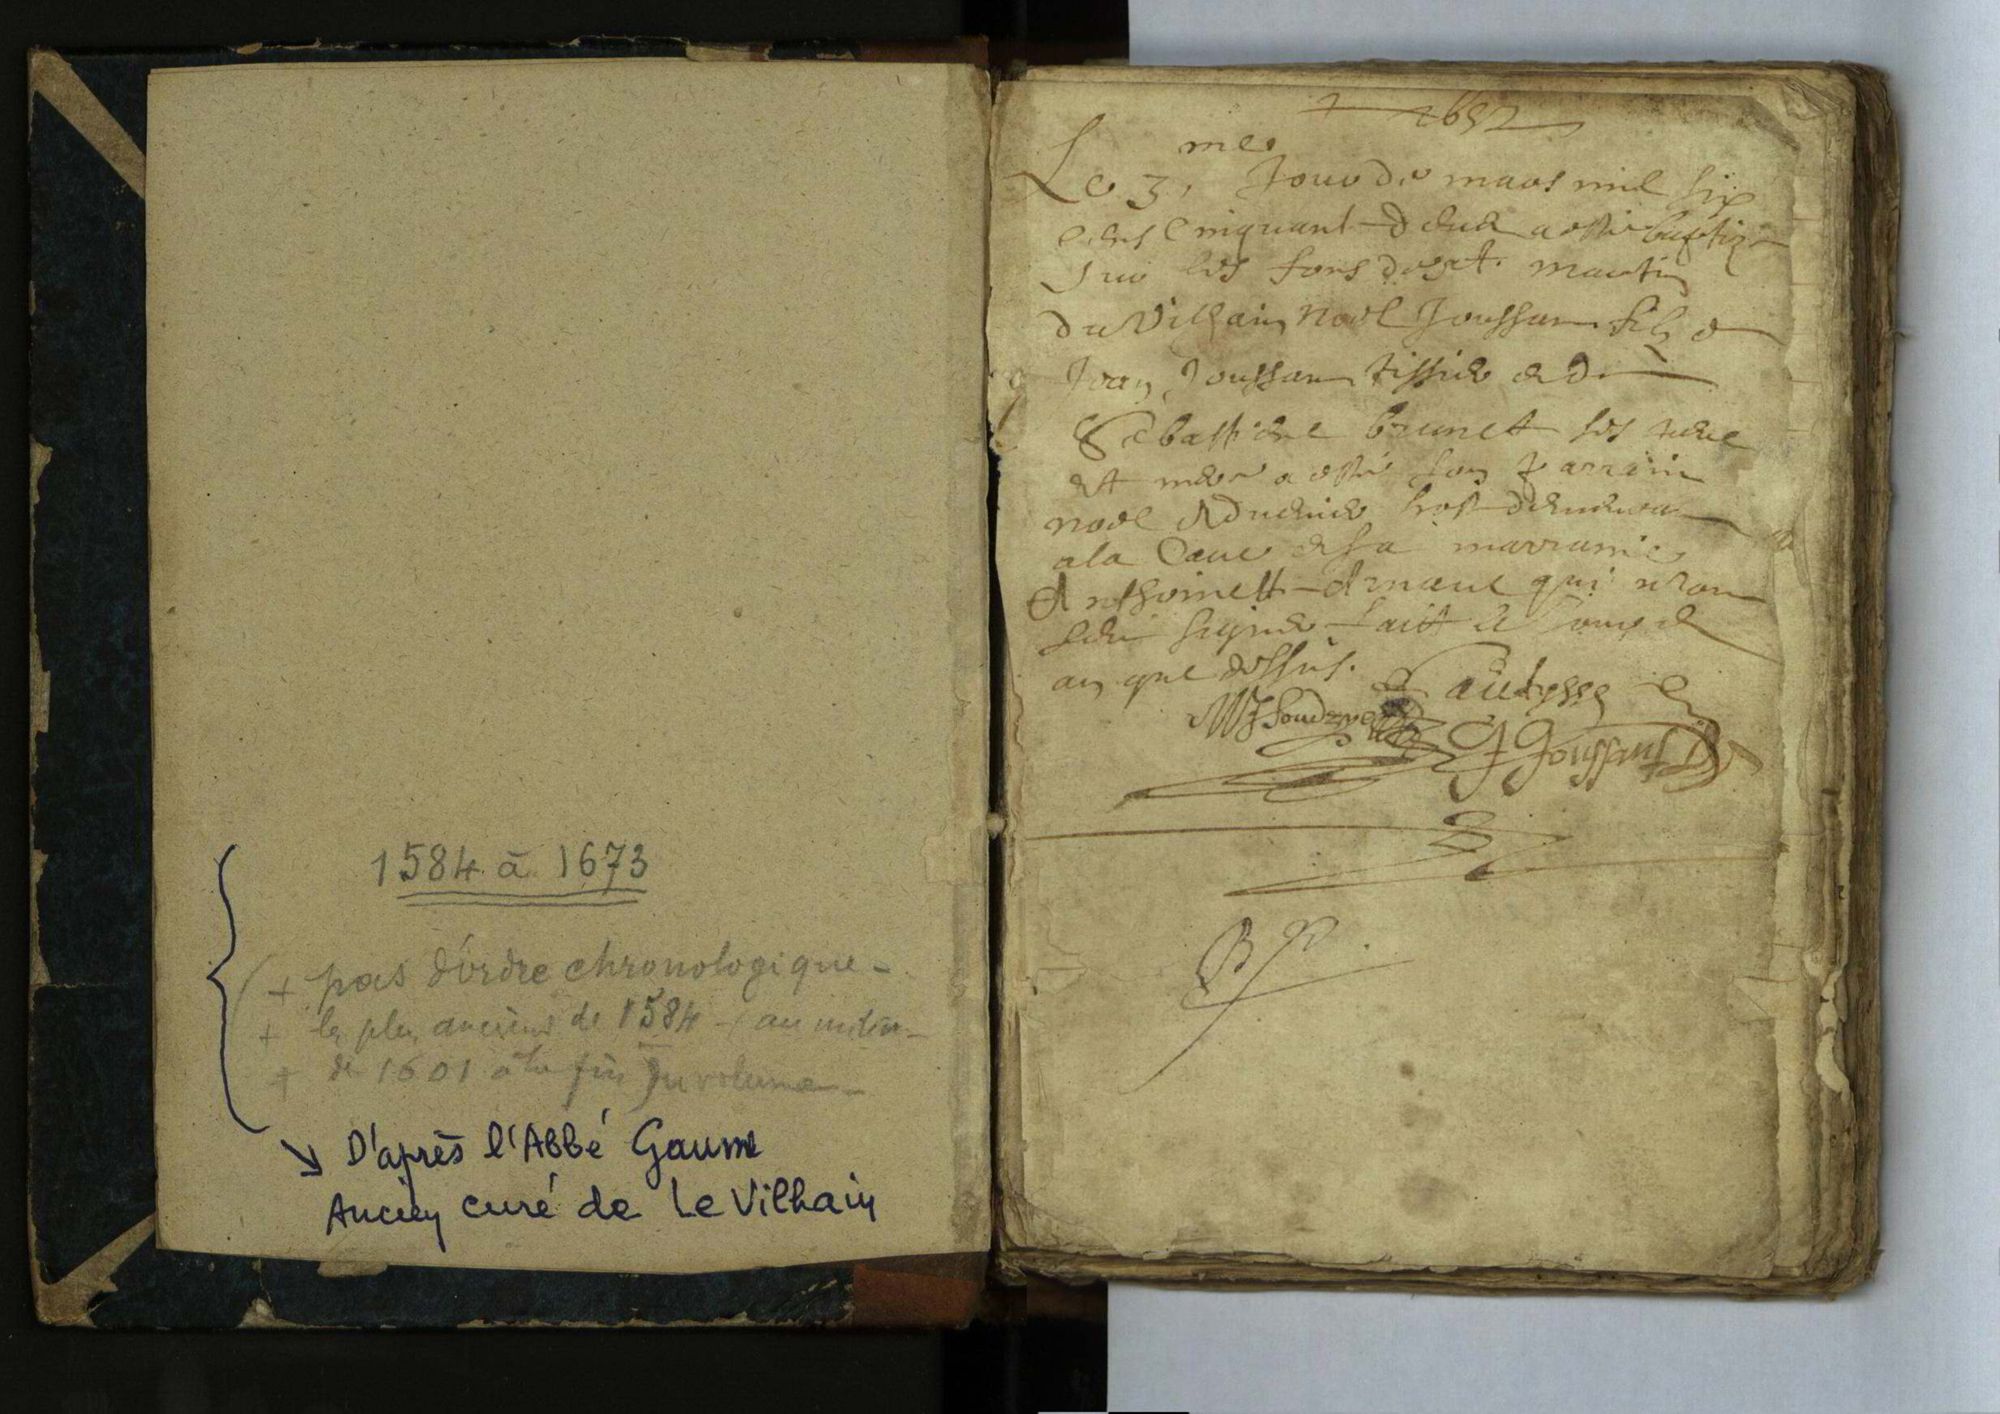 1584 à 1673
+ pas d'ordre chronologique -
+ les plus anciens de 1584 - au milieu -
+ de 1601 à la fin du volume -
D'après l'Abbé Gaume
Ancien curé de Le Vilhain
1652
me
Le 3, Jour de mars mil six
cens cinquant deux a esté baptizé
sur les fons de st. martin
du Vilhain noel Joussan filz de
Jean Joussan tissier et de
Sebastiene brunet ses pere
et mere a esté son parrain
noel
a la et sa marranie
Anthoinette qui n'ron
sceu signer fait le Jour et
an que dessus.
Joussant